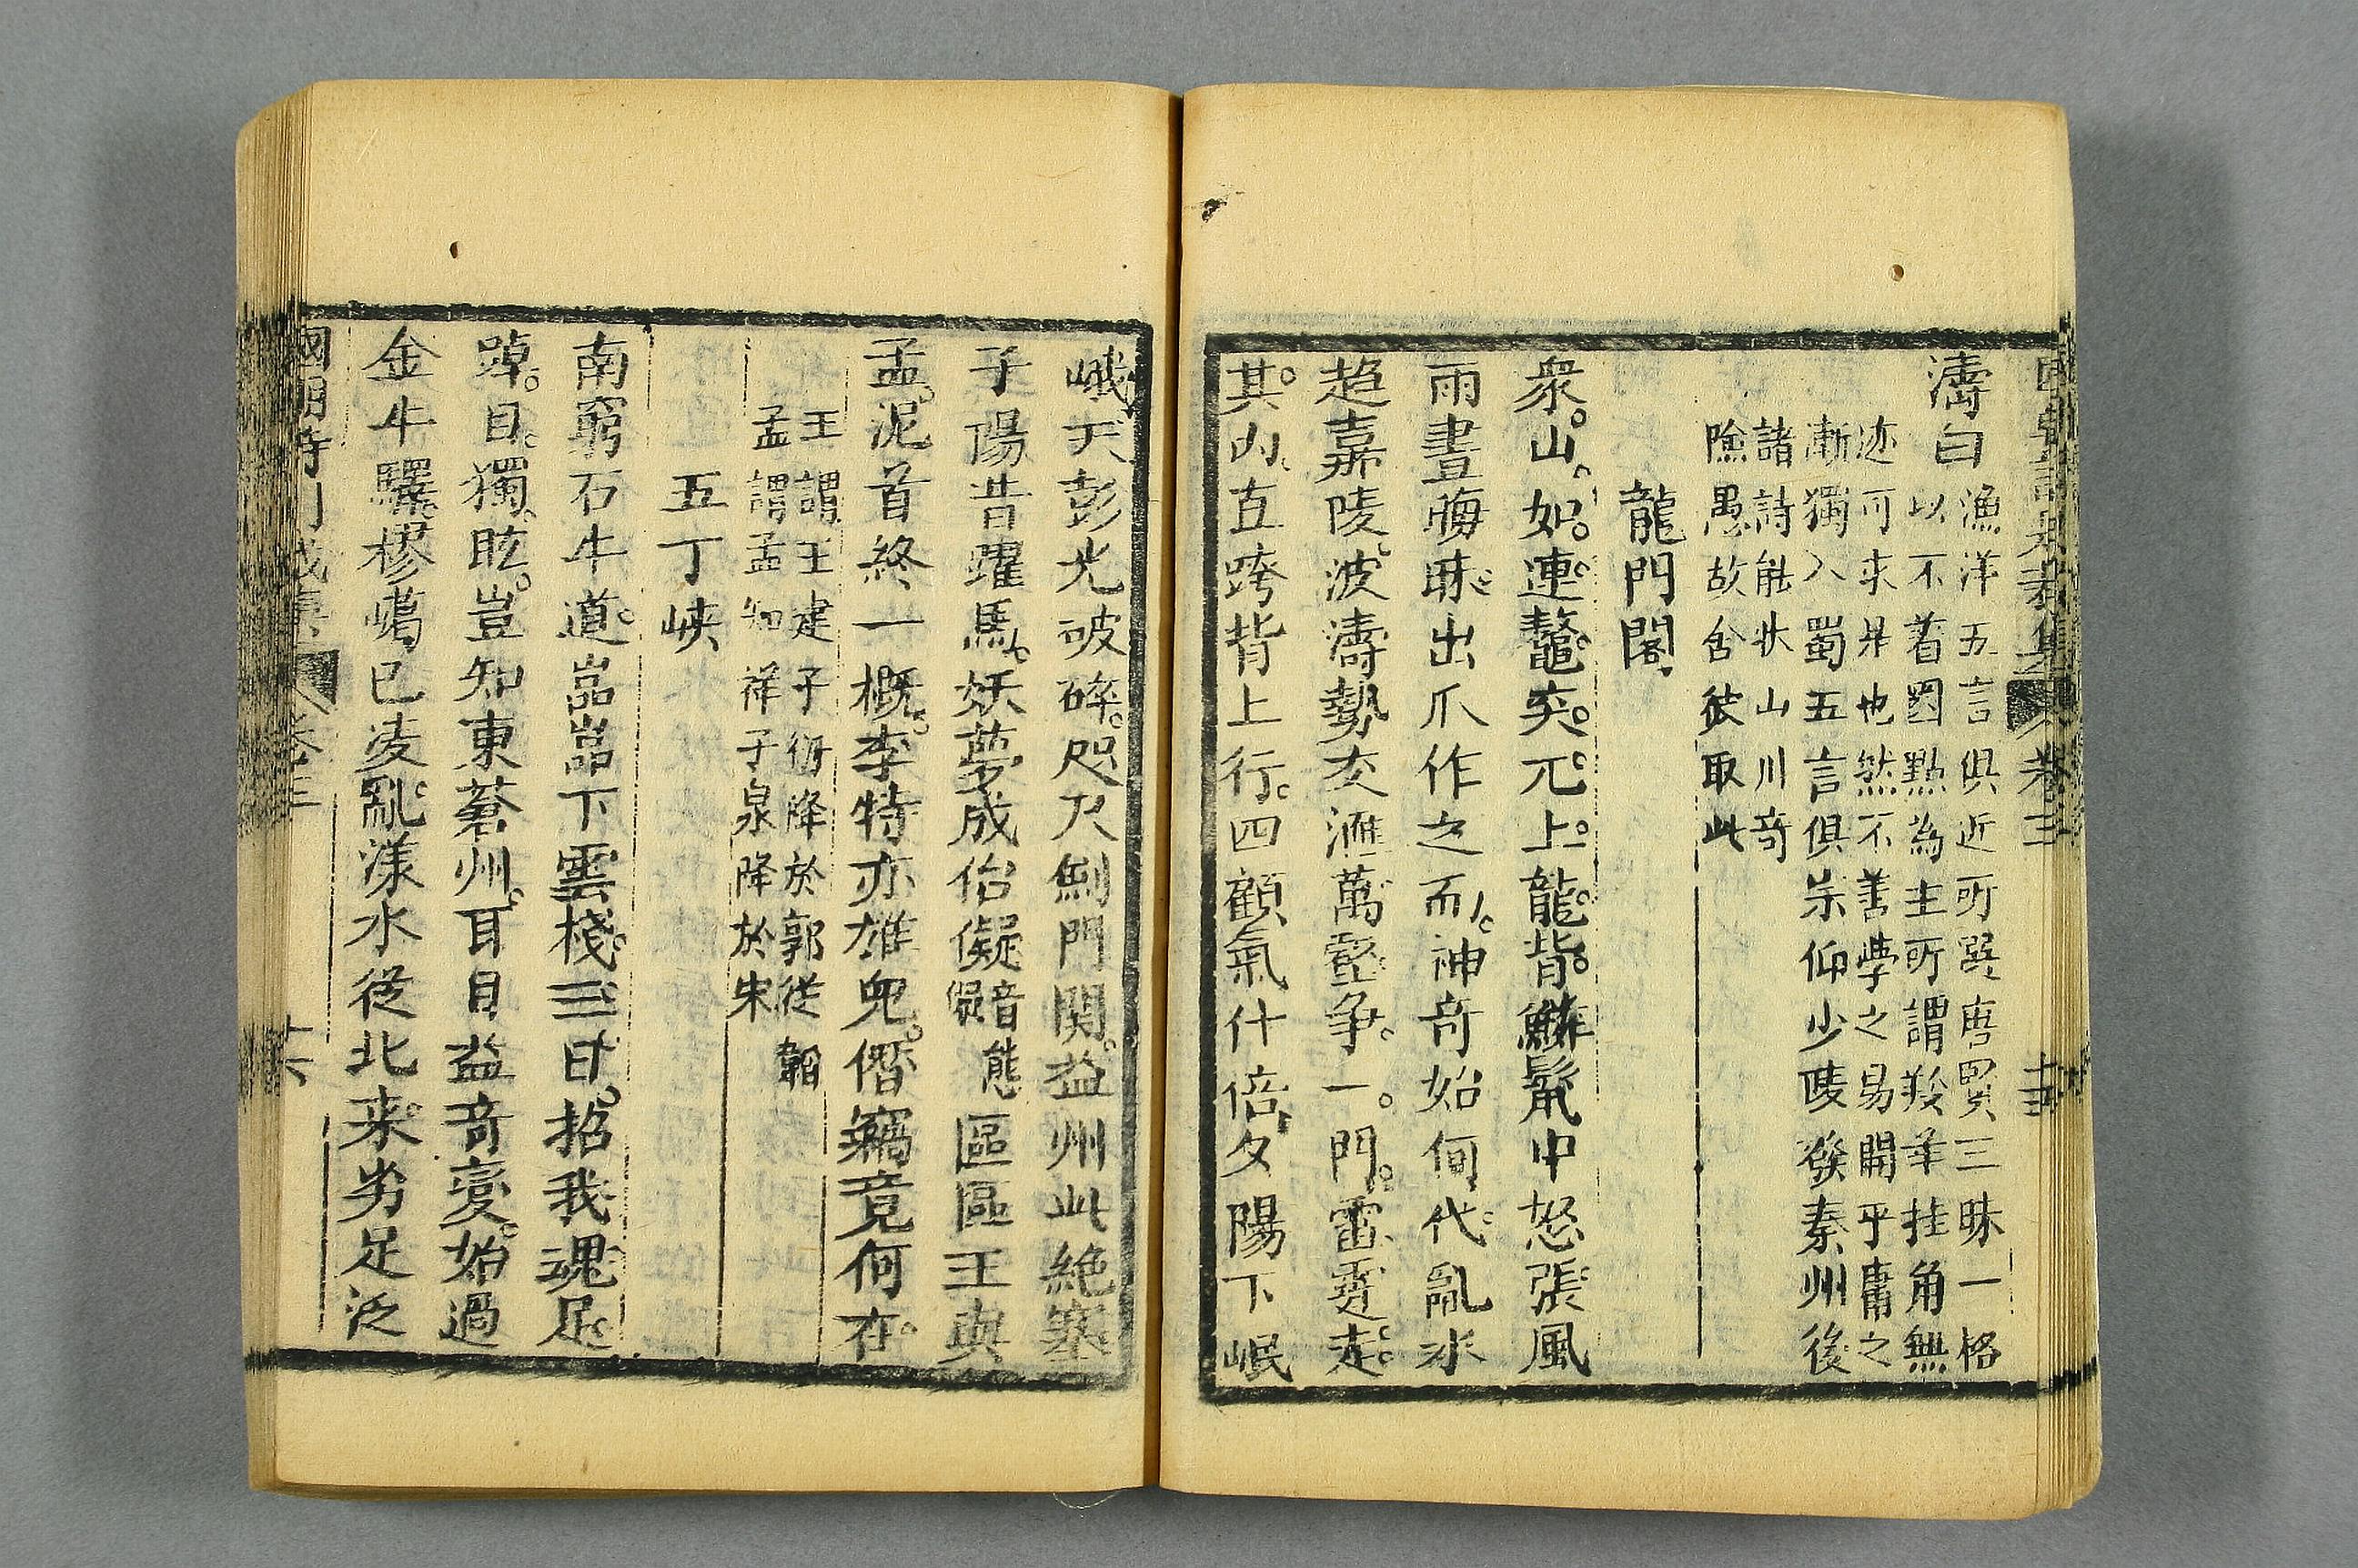 國朝詩別裁集 卷三 十五
濤曰
漁洋五言俱近所選唐賢三昧一格
以不着圈點為主所謂羚羊挂角無
迹可求是也然不善學之易開平庸之
漸獨入蜀五言俱宗仰少陵發秦州後
諸詩能狀山川奇
險愚故舍彼取此
龍門閣
衆山如連鼇突兀上龍背鱗鬛中怒張風
雨晝晦昧出爪作之而神奇始何代亂水
趋嘉陵波濤勢交滙萬壑爭一門雷霆走
其內直跨背上行四顧氣什倍夕陽下岷
峨天彭光破碎咫尺劍門関益州此絕塞
子陽昔躍馬妖夢成佁儗音態儗區區王與
孟泥首終一概李特亦雄兒僭竊竟何在
王謂王建子衍降於郭從韜
孟謂孟知祥子泉降於宋
五丁峽
南窮石牛道嵓嵓下雲棧三日招我魂足
踔目獨眩豈知東蒼州耳目益奇變始過
金牛驛樛嶱已凌亂漾水從北来劣足泛
國朝詩別裁集 卷三 十六